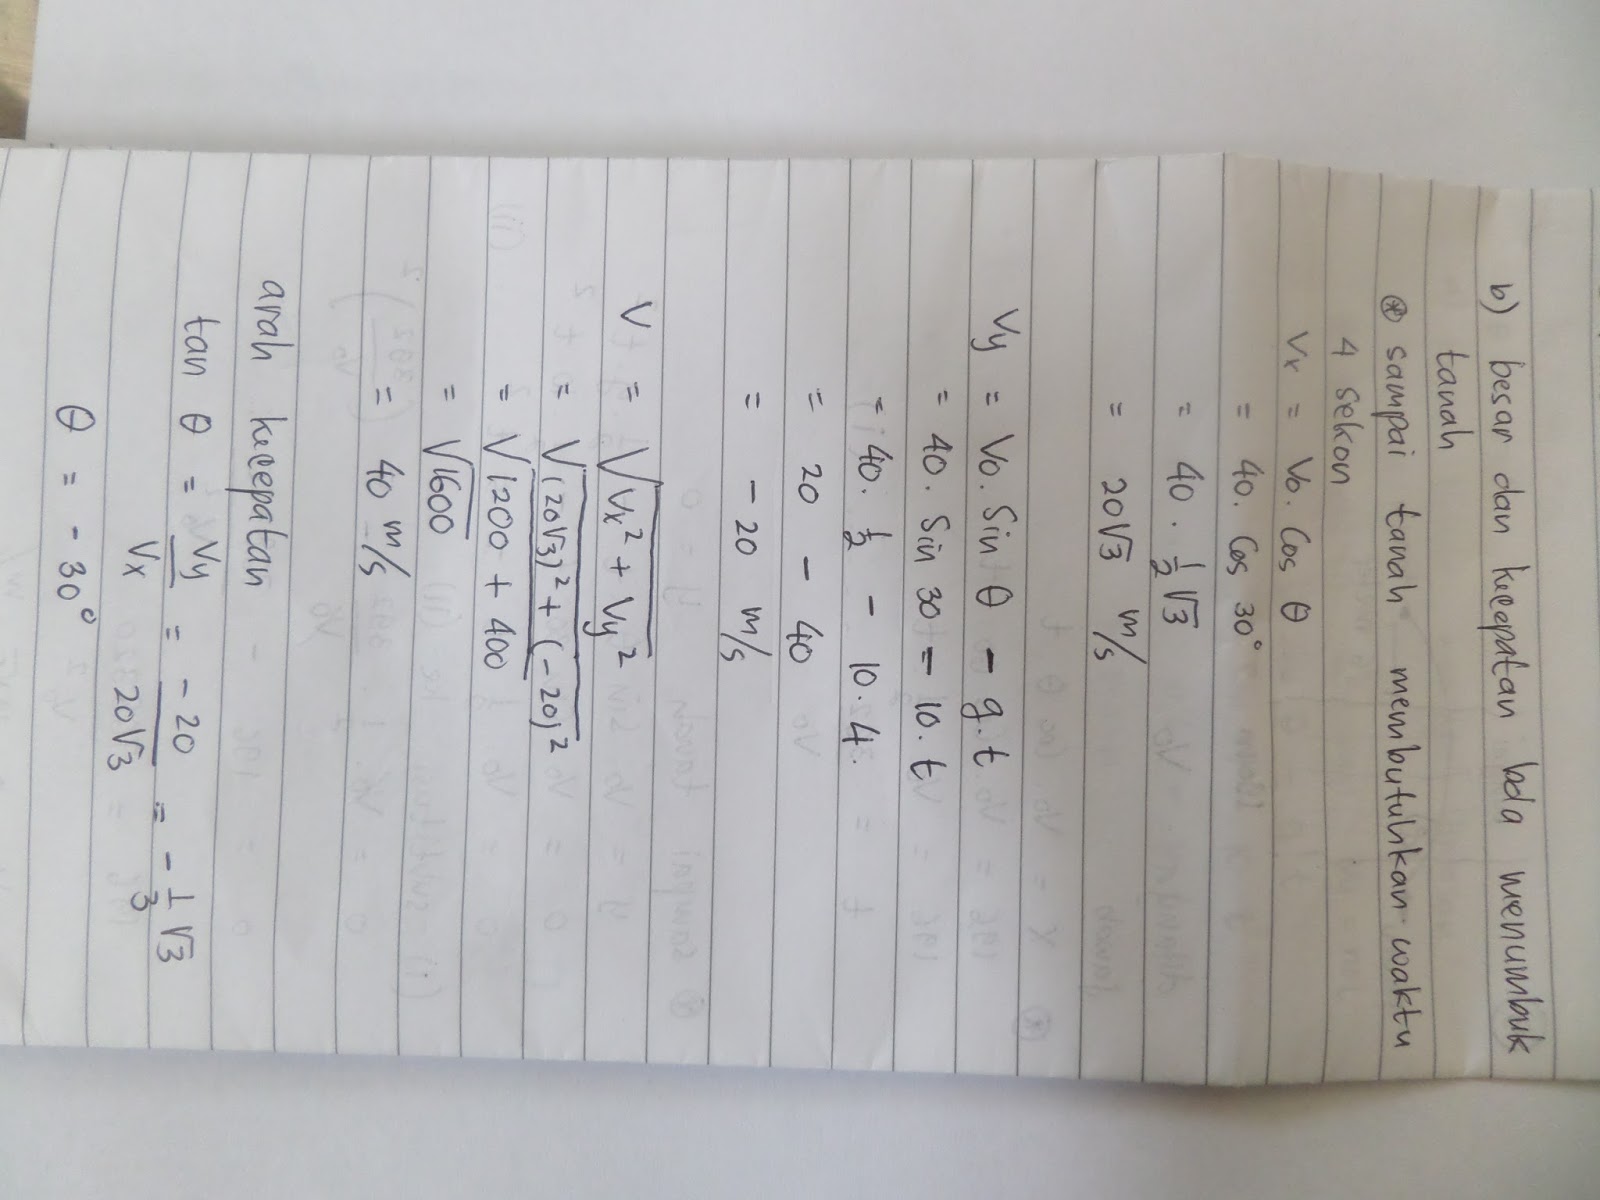 b) besar dan kecepatan bola menumbuk
tanah
⊛ sampai tanah membutuhkan waktu
4 sekon
Vx = Vo. Cos θ
= 40. Cos 30°
= 40 . 1/2 √3
= 20√3 m/s
Vy = Vo. Sin θ - g.t
= 40. Sin 30 - 10. t
= 40. 1/2 - 10. 4.
= 20 - 40
= - 20 m/s
V = √Vx² + Vy²
= √(20√3)² + (-20)²
= √1200 + 400
= √1600
= 40 m/s
arah kecepatan
tan θ = Vy/Vx = -20/20√3 = - 1/3 √3
θ = - 30°